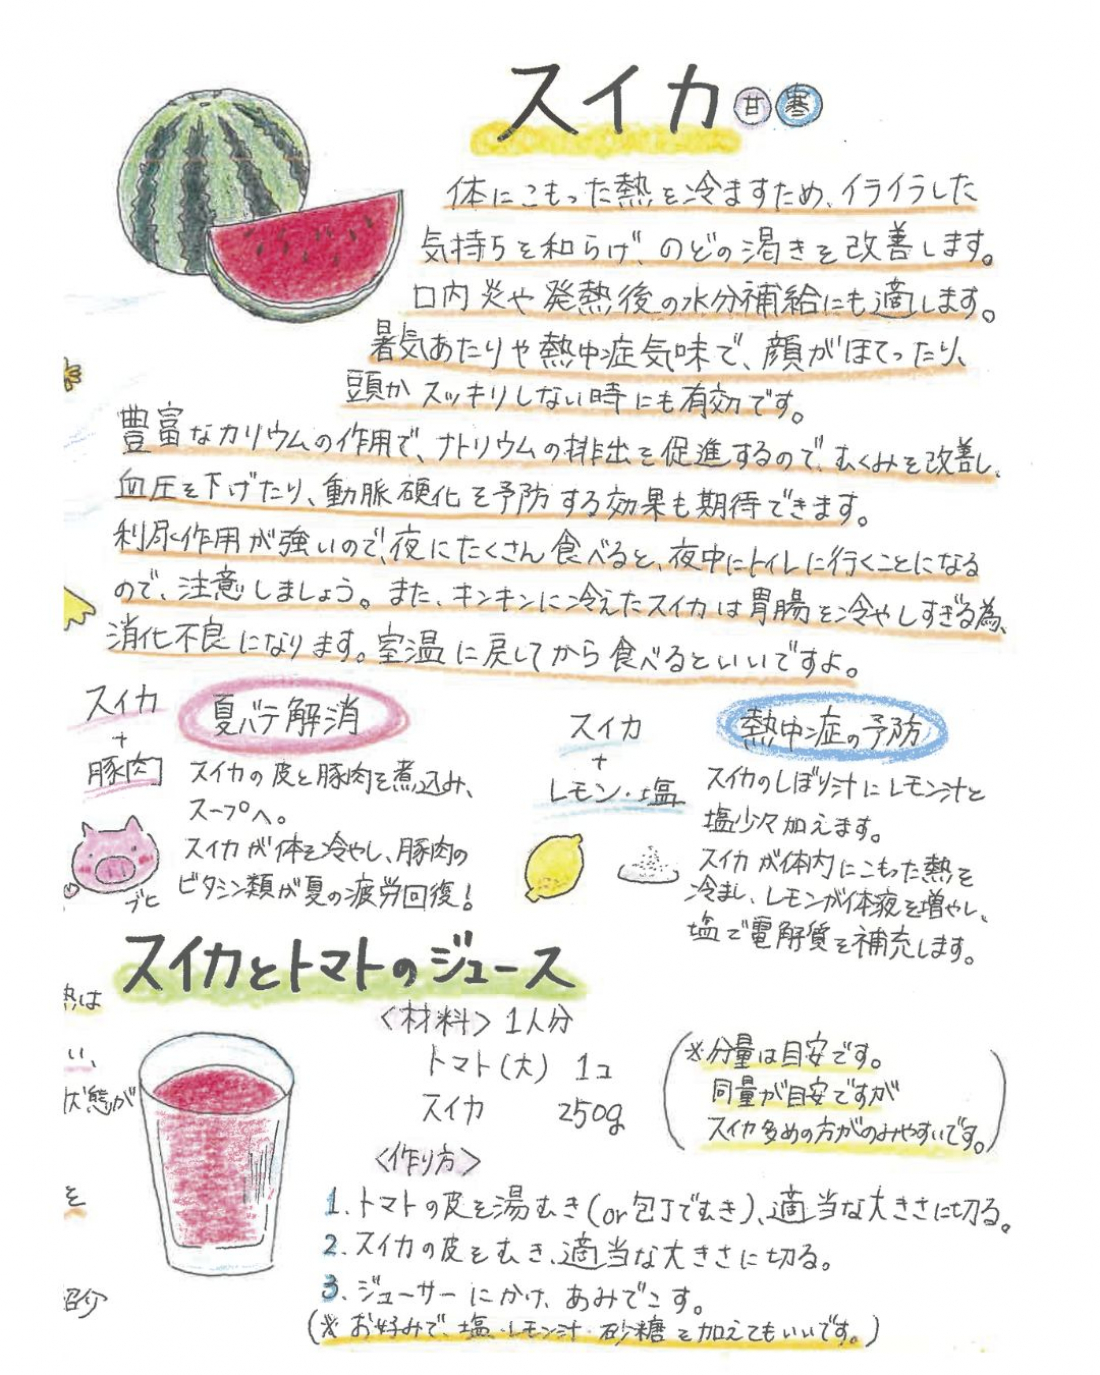 スイカ 甘 寒
体にこもった熱を冷ますため、イライラした
気持ちを和らげ、のどの渇きを改善します。
口内炎や発熱後の水分補給にも適します。
暑気あたりや熱中症気味で、顔がほてったり、
頭がスッキリしない時にも有効です。
豊富なカリウムの作用で、ナトリウムの排出を促進するので、むくみを改善し、
血圧を下げたり、動脈硬化を予防する効果も期待できます。
利尿作用が強いので、夜にたくさん食べると、夜中にトイレに行くことになる
ので、注意しましょう。また、キンキンに冷えたスイカは胃腸を冷やしすぎる為、
消化不良になります。室温に戻してから食べるといいですよ。
スイカ
+
豚肉
夏バテ解消
スイカの皮と豚肉を煮込み、
スープへ。
スイカが体を冷やし、豚肉の
ビタミン類が夏の疲労回復!
ブヒ
スイカ
+
レモン・塩
熱中症の予防
スイカのしぼり汁にレモン汁と
塩少々加えます。
スイカが体内にこもった熱を
冷まし、レモンが体液を増やし、
塩で電解質を補充します。
スイカとトマトのジュース
<材料> 1人分
トマト(大) 1コ
スイカ 250g
(※分量は目安です。
同量が目安ですが
スイカ多めの方がのみやすいです。)
<作り方>
1. トマトの皮を湯むき(or包丁でむき)、適当な大きさに切る。
2. スイカの皮をむき、適当な大きさに切る。
3. ジューサーにかけ、あみでこす。
(※お好みで、塩・レモン汁・砂糖を加えてもいいです。)
熱は
い、
状態が
を
紹介